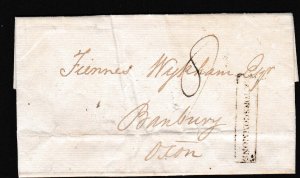 Fiennes Wykham Esqr
8
Banbury
Oxon